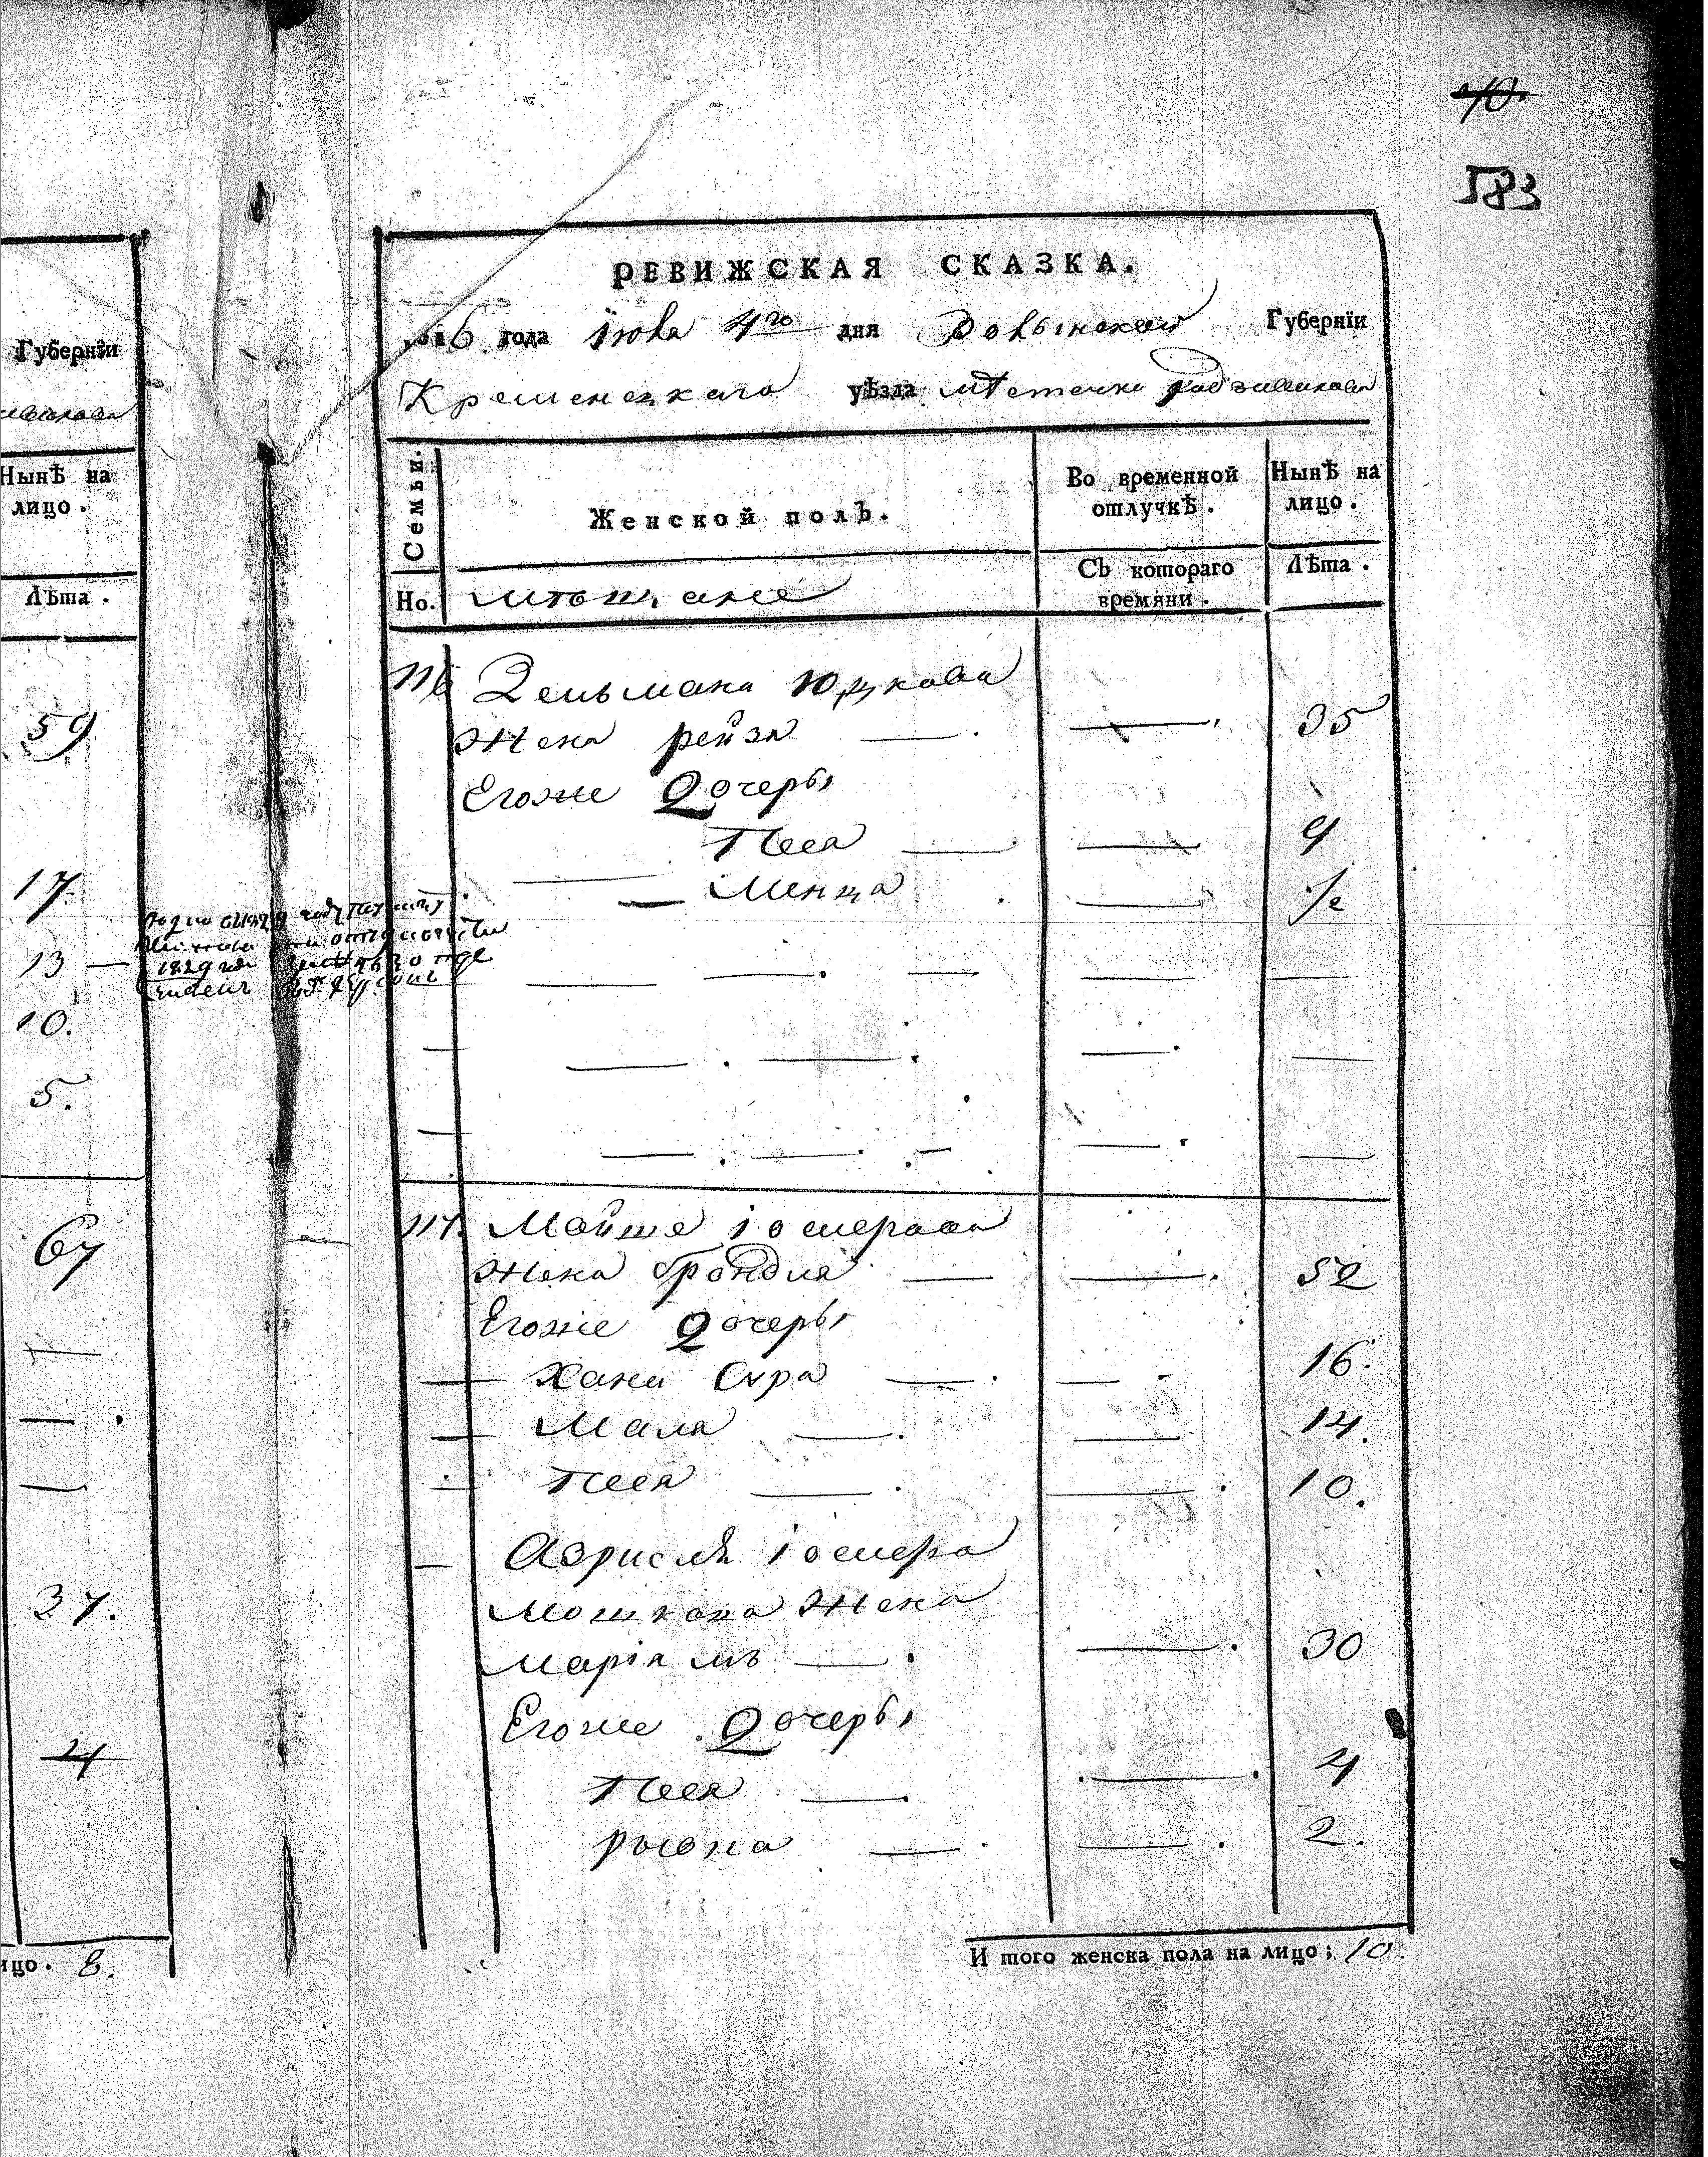 Губернїи
Нынѣ на
лицо.
Лѣта.
59
17.
13 —
10.
5.
67
37.
4
8.
40.
583
РЕВИЖСКАЯ СКАЗКА.
1816 года Iюня 4го дня Волынской Губернїи
Кременецкаго уѣзда мѣстечка Радзивилова
Семьи.
Женской полъ.
Во временной
отлучкѣ.
Нынѣ на
лицо.
Но.
мѣщане
Съ котораго
времяни.
Лѣта.
116 Зельмана Юцкова
Жена рейза — — 35
Егоже Дочеры
Песя — — 9
— Менца — ½
117. Мойше Iосперова
Жена Брондля — — 52
Егоже Дочеры
— Хана Сура — — 16.
— Маля — — 14.
— Песя — — 10.
— Азриеля Iоспера
Мошкова Жена
Марiямъ — — 30
Егоже Дочеры
Песя — — 4
— — 2.
И того женска пола на лицо; 10.